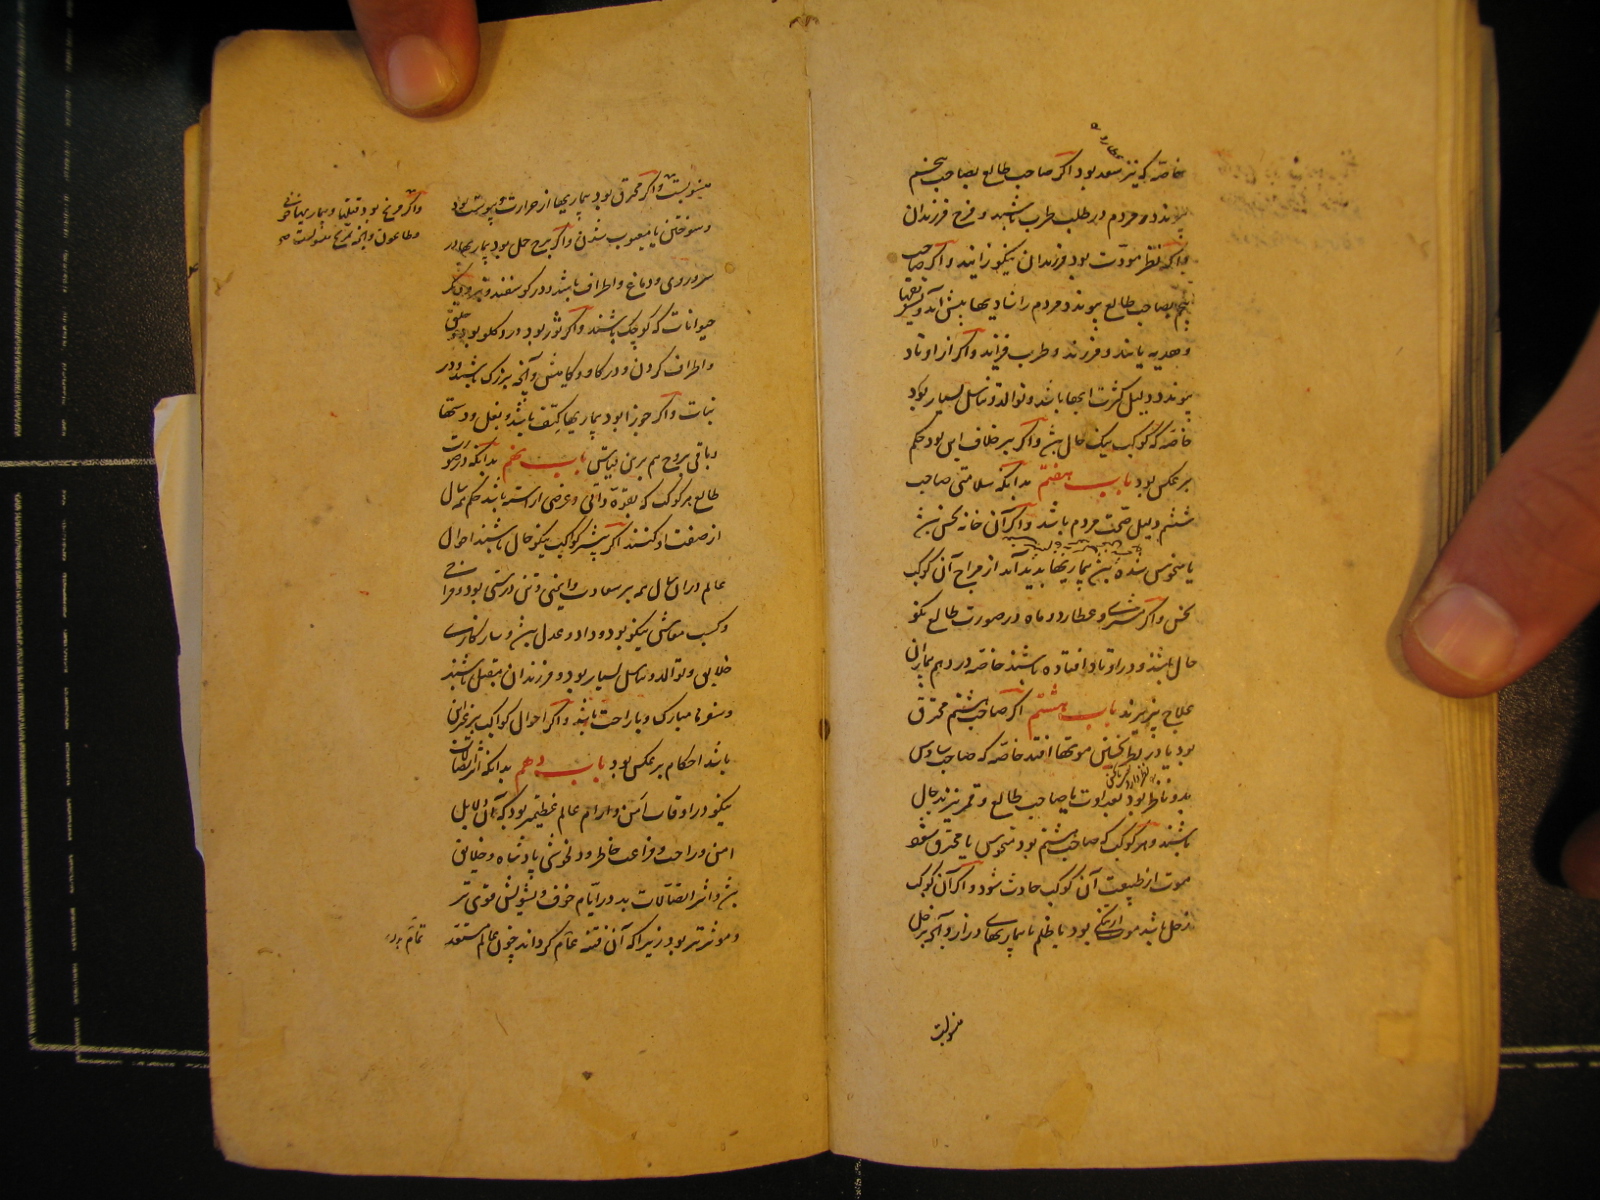 خاصه که نیز سعد بود اگر صاحب طالع بصاحب پنجم
عطارد
پیوندد مردم در طلب طرب باشند و فرح فرزندان
و اگر نظر مودت بود فرزندان نیکو زایند و اگر صاحب
پنجم بصاحب طالع پیوندد مردم را شادیها پیش آید و
و هدیه یابند و فرزند و طرب فزاید و اگر از اوتاد
پیوندد دلیل کثرت اینها باشد و توالد و تناسل بسیار بود
خاصه که کوکب نیک حال بود و اگر بر خلاف این بود حکم
بر عکس بود باب هفتم بدانکه سلامتی صاحب
ششم دلیل صحت مردم باشد و اگر آن خانه نحس بود
یا منحوس شده بود بیماریها پدید آید از مزاج آن کوکب
نحس و اگر مشتری و عطارد و ماه در صورت طالع نکو
حال باشند و در اوتاد افتاده باشند خاصه در دهم بیماران
علاج پذیرند باب هشتم اگر صاحب هشتم محترق
بود یا در نظر نحسین موتها افتد خاصه که صاحب سادس
بدو ناظر بود بعداوت یا صاحب طالع و قمر نیز بد حال
باشند و هر کوکب که صاحب هشتم بود منحوس یا محترق شود
موت از طبیعت آن کوکب حادث شود و اگر آن کوکب
زحل باشد موت از بود یا ظلم یا بیماریهای دراز و آنچه بزحل
منسوبست
منسوبست و اگر محترق بود بیماریها از حرارت و یبوست بود
و سوختن یا معیوب شدن و اگر برج حمل بود بیماریها در
سر و روی و دماغ و اطراف باشد و در گوسفند و بز و دیگر
حیوانات که کوچک باشند و اگر ثور بود درد گلو بود و حلق
و اطراف گردن و در گاو و گامیش و آنچه بزرگ باشند و در
نبات و اگر جوزا بود بیماریها کتف باشد و بغل و دستها
و باقی بروج هم برین قیاس باب نهم بدانکه در صورت
طالع هر کوکب که بقوه ذاتی و عرضی آراسته باشد حکم سال
از صفت او کنند اگر بیشتر کواکب نیکو حال باشند احوال
عالم در آن سال همه بر سعادت و ایمنی و تن درستی بود و فراخی
و کسب معاش نیکو بود و داد و عدل بود و سازکاری
خلایق و توالد و تناسل بسیار بود و فرزندان مقبل باشند
و سفرها مبارک و با راحت باشد و اگر احوال کواکب بر غیر این
باشد احکام بر عکس بود باب دهم بدانکه اثر اتصالات
نیکو در اوقات امن و آرام عالم عظیمتر بود که آن دلایل
امن و راحت و فراغت خاطر و دلخوشی پادشاه و خلایق
بود و اثر اتصالات بد در ایام خوف و تشویش قوی تر
و موثرتر بود زیرا که آن فتنه عام گرداند چون عالم مستعد
و اگر مریخ بود قتلها و بیماریها خونی
و طاعون و آنچه بمریخ منسوبست صح